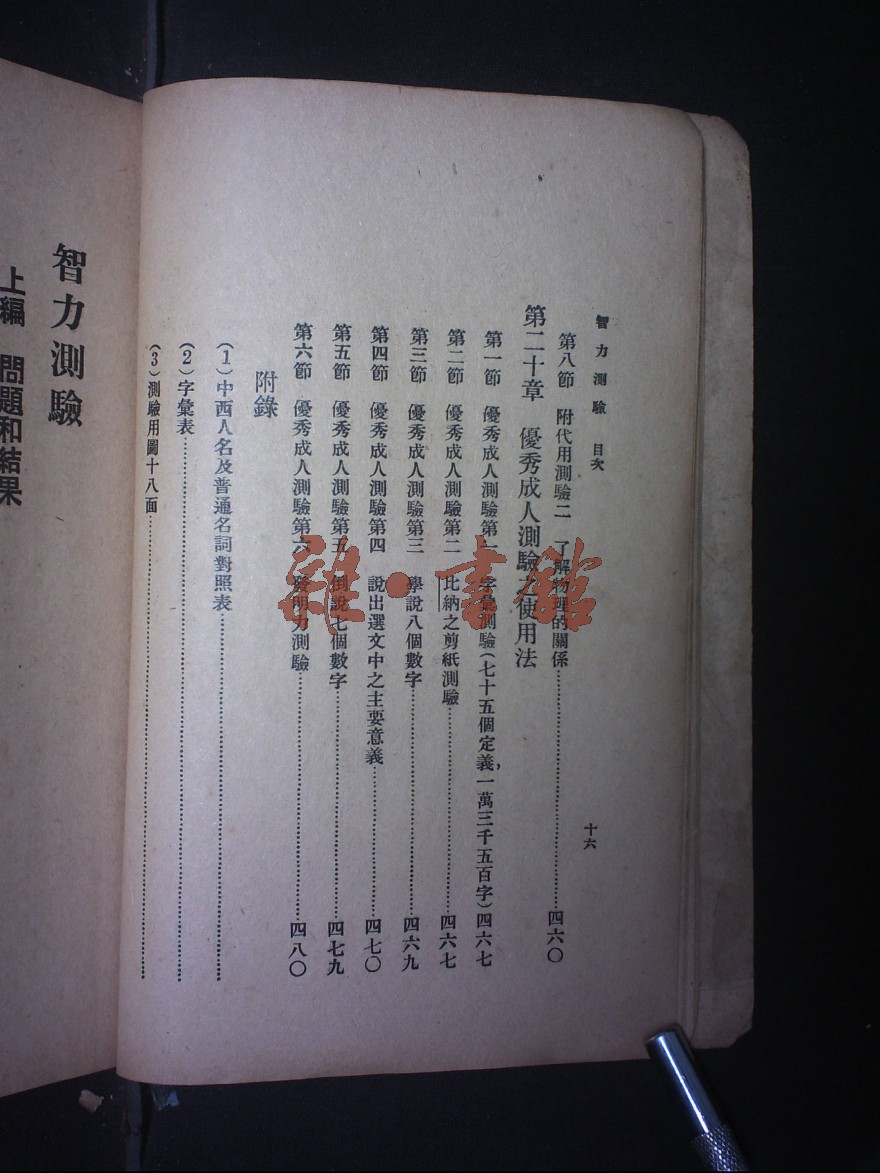 智力測驗 目次
十六
第八節 附代用測驗二 了解物理的關係……四六〇
第二十章 優秀成人測驗之使用法
第一節 優秀成人測驗第一 字彙測驗(七十五個定義，一萬三千五百字)四六七
第二節 優秀成人測驗第二 比納之剪紙測驗……四六七
第三節 優秀成人測驗第三 學說八個數字……四六九
第四節 優秀成人測驗第四 說出選文中之主要意義……四七〇
第五節 優秀成人測驗第五 倒說七個數字……四七九
第六節 優秀成人測驗第六 發明力測驗……四八〇
附錄
(1)中西人名及普通名詞對照表……
(2)字彙表……
(3)測驗用圖十八面……
智力測驗
上編 問題和結果
雜·書館